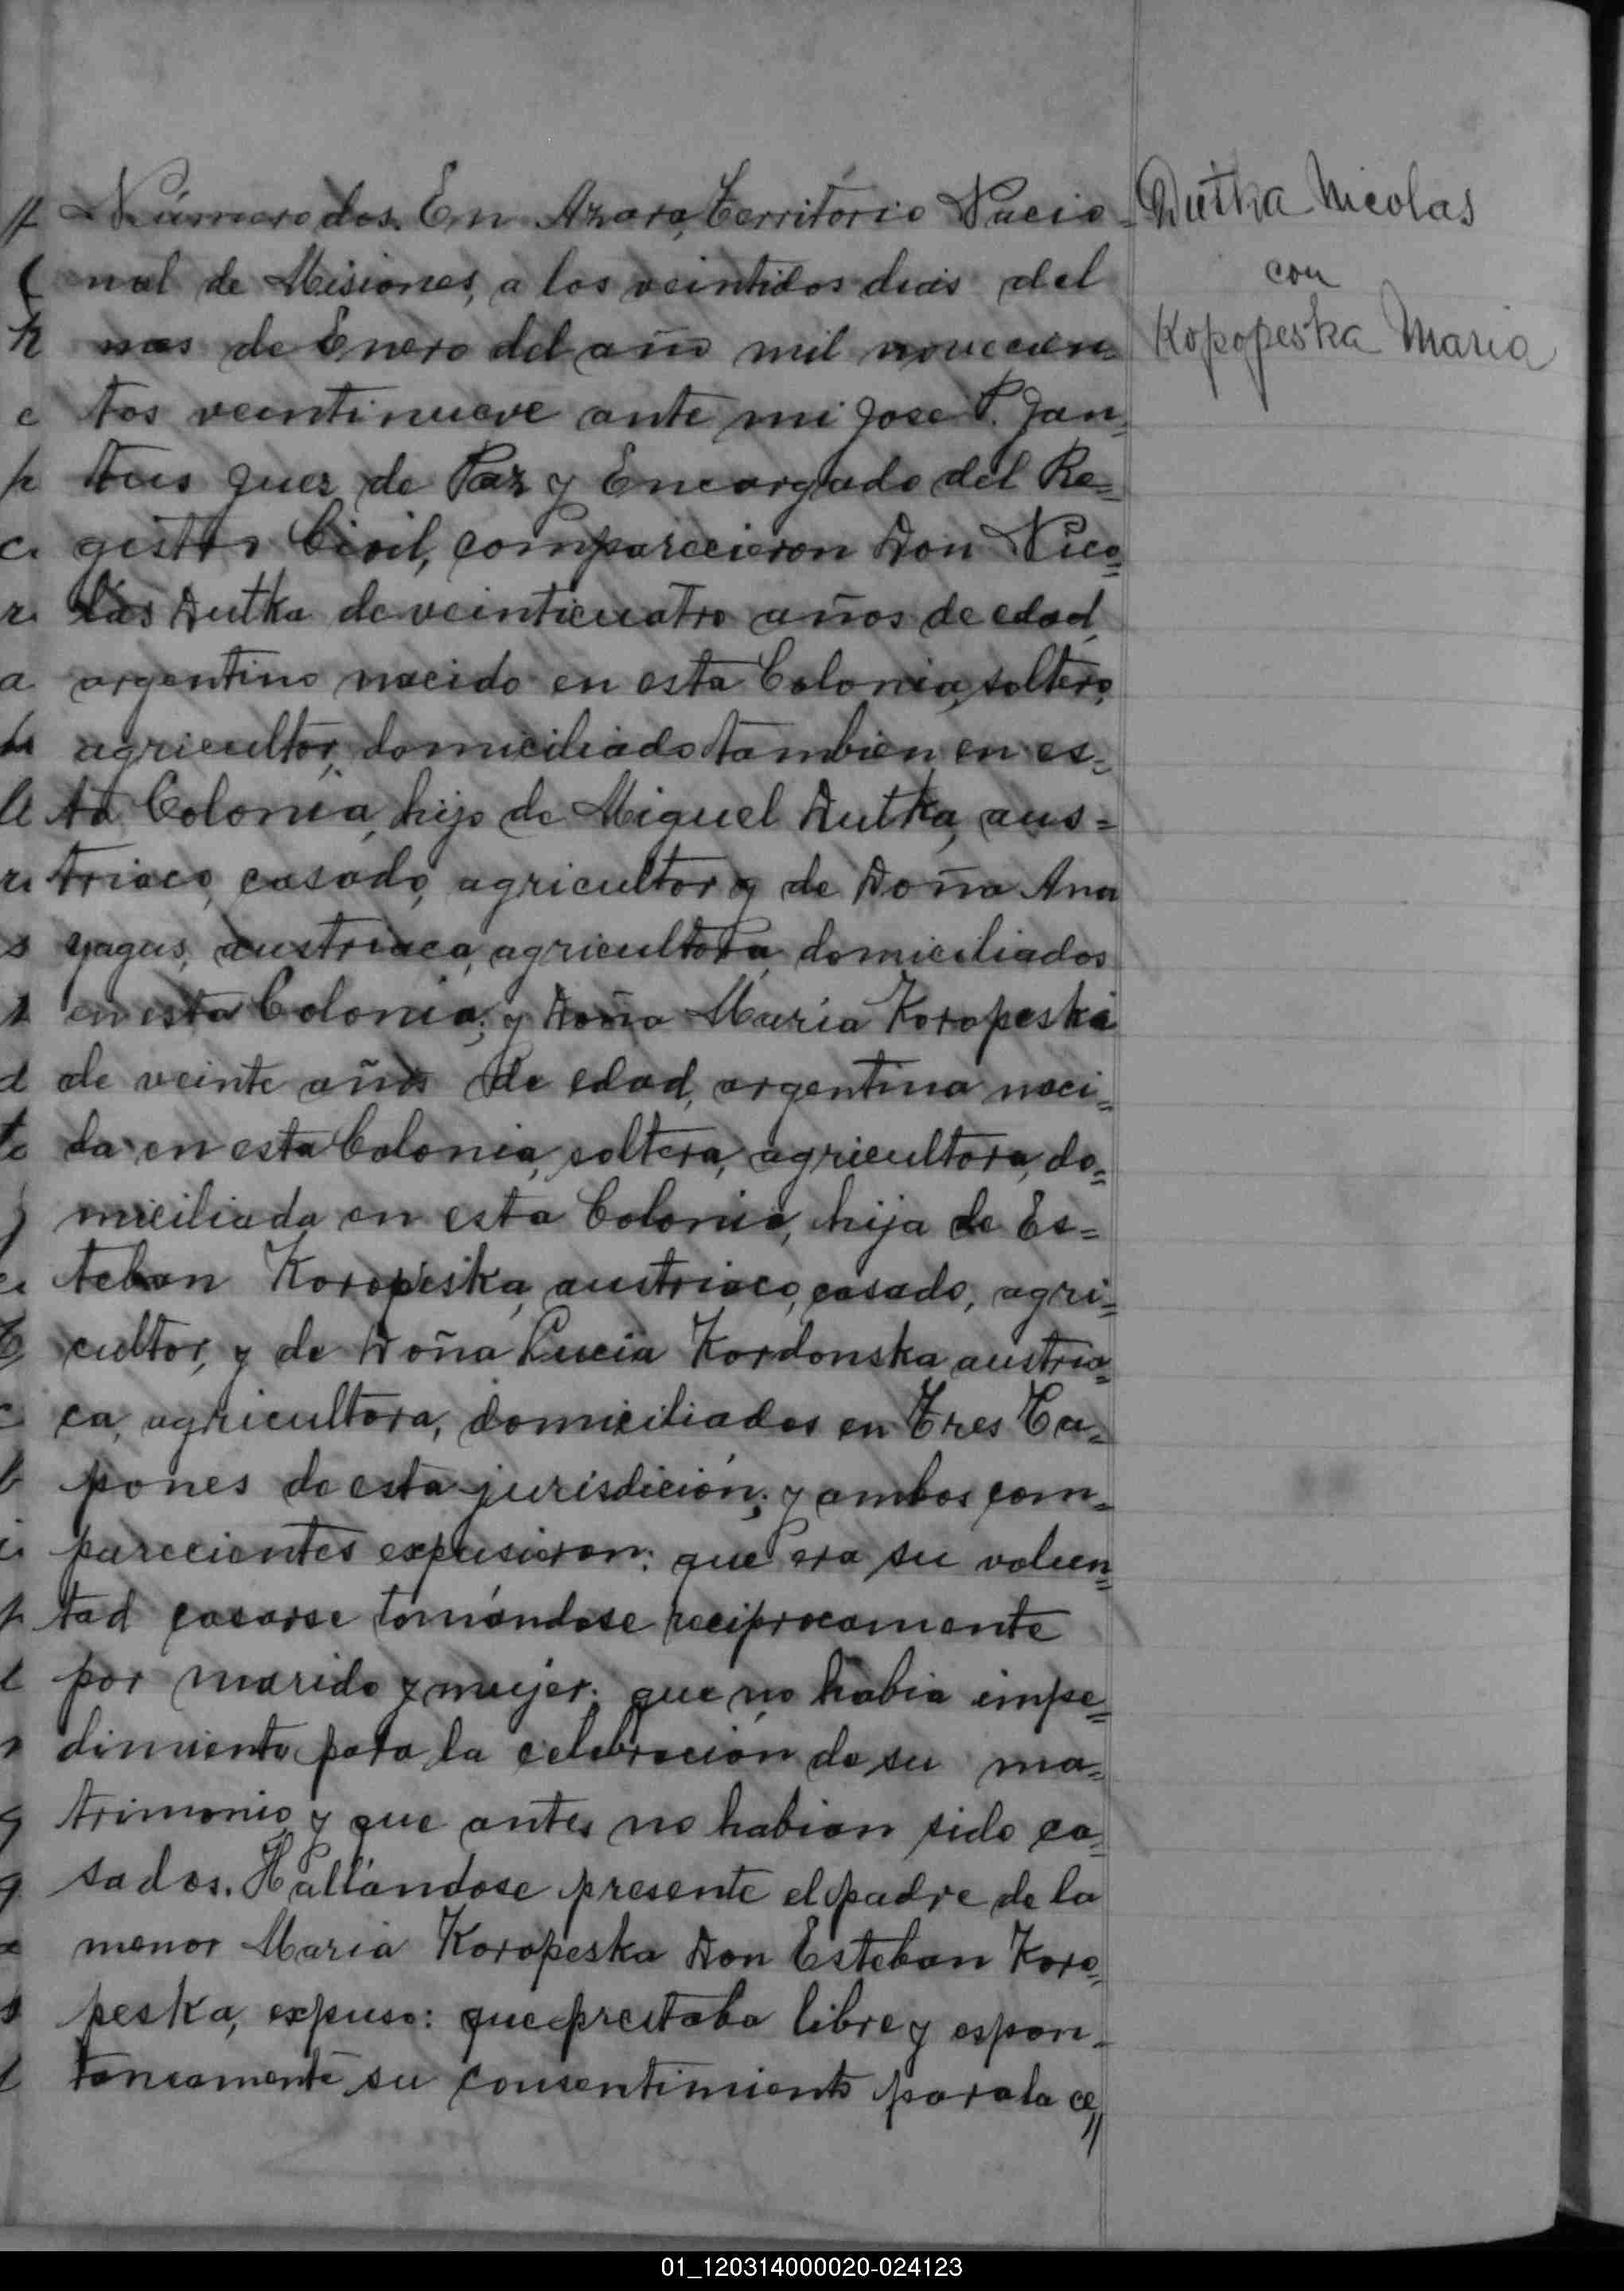 Número dos. En Azara, Territorio Nacio-
nal de Misiones, a los veintidos dias del
mes de Enero del año mil novecien-
tos veintinueve ante mi Jose P. Jan-
tus Juez de Paz y Encargado del Re=
gistro Civil, comparecieron Don Nico=
lás Dutka de veinticuatro años de edad,
argentino nacido en esta Colonia, soltero,
agricultor, domiciliado tambien en es=
ta Colonia, hijo de Miguel Dutka, aus=
triaco, casado, agricultor y de Doña Ana
yagus, austriaca, agricultora, domiciliados
en esta Colonia; y Doña María Koropeska
de veinte años de edad, argentina naci=
da en esta Colonia, soltera, agricultora, do=
miciliada en esta Colonia, hija de Es=
teban Koropeska, austriaco, casado, agri=
cultor, y de Doña Lucia Kordonska austria=
ca, agricultora, domiciliados en Tres Ca=
pones de esta jurisdición; y ambos com=
parecientes expusieron: que era su volun=
tad casarse tomándose reciprocamente
por marido y mujer; que no habia impe=
dimiento para la celebración de su ma=
trimonio y que antes no habian sido ca=
sados. Hallándose presente el padre de la
menor Maria Koropeska Don Esteban Koro=
peska, expuso: que prestaba libre y espon=
taneamente su consentimiento para la ce//
Dutka Nicolas
con
Kopopeska Maria
01_120314000020-024123